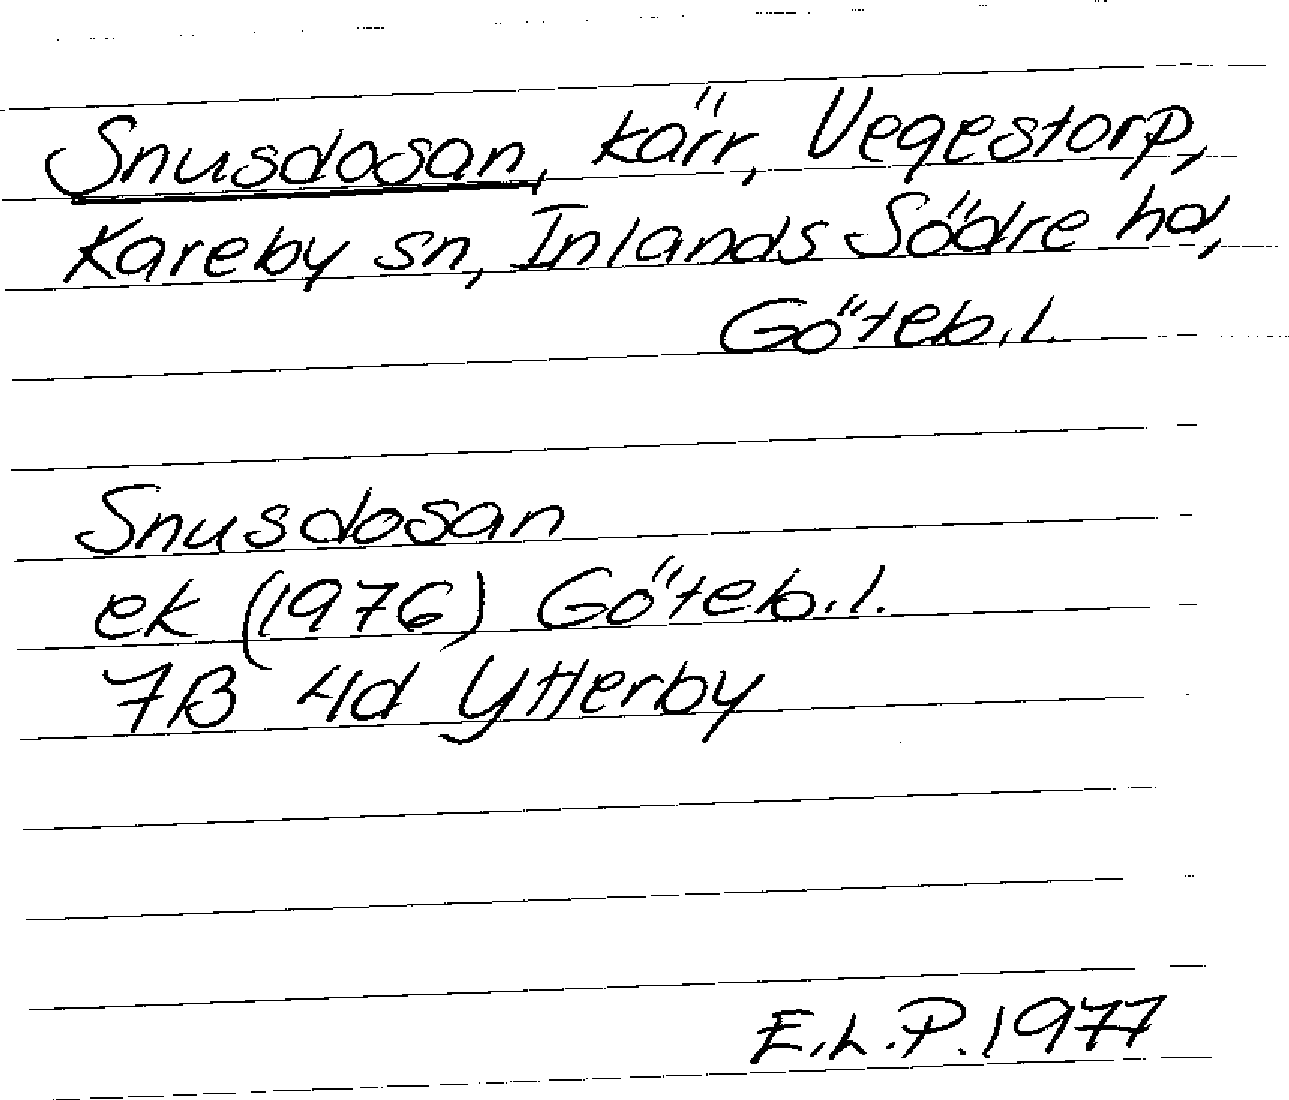 Snusdosan, kärr, Vegestorp,
Kareby sn, Inlands Södre hd,
Göteb.l.
Snusdosan
ek (1976) Göteb.l.
7B 4d Ytterby
E.L.P. 1977